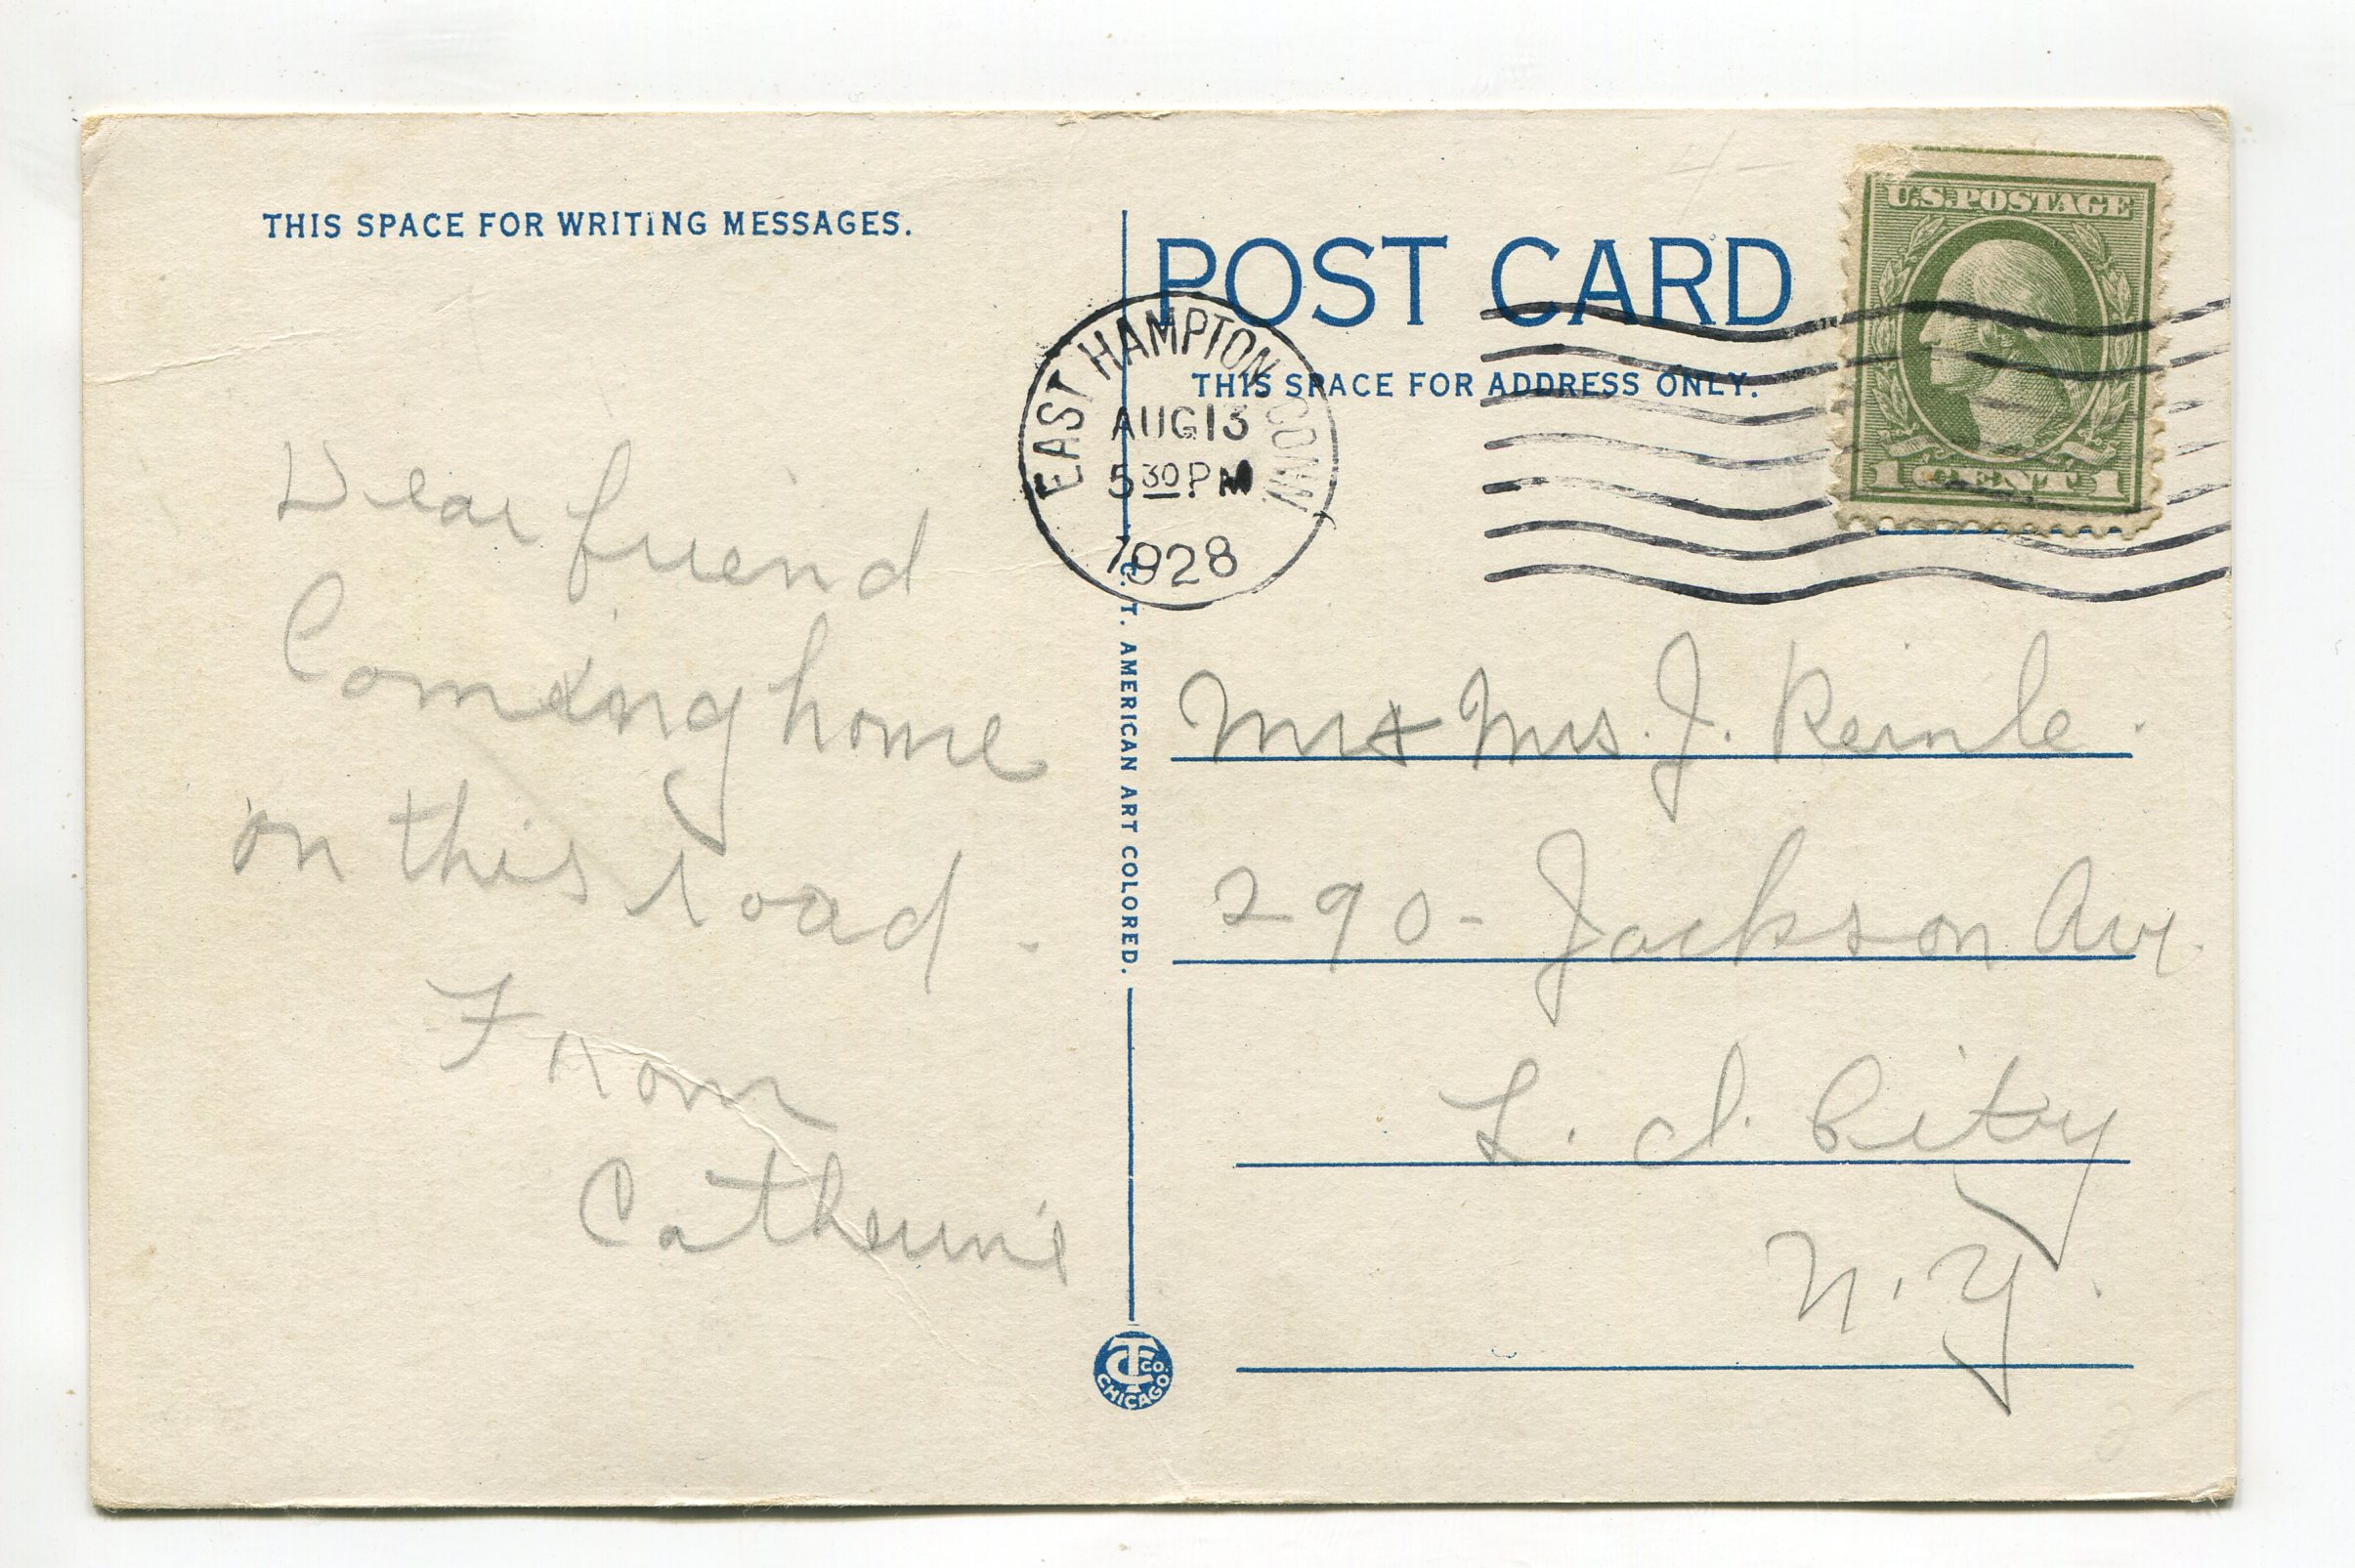 THIS SPACE FOR WRITING MESSAGES.
Dear friend
Coming home
on this road.
From
Catherine
POST CARD
THIS SPACE FOR ADDRESS ONLY.
U.S. POSTAGE
1 CENT 1
EAST HAMPTON CONN
AUG 13
5 30 PM
1928
C. T. AMERICAN ART COLORED.
Mr & Mrs. J. Reinle.
290 - Jackson Av.
L. I. City
N. Y.
CT CO. CHICAGO